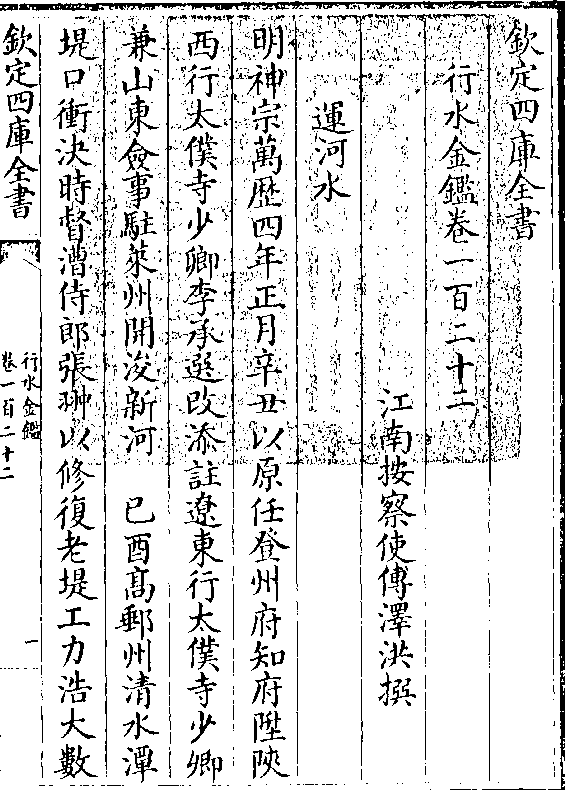 欽定四庫全書
行水金鑑卷一百二十二
江南按察使傅澤洪撰
運河水
明神宗萬歴四年正月辛丑以原任登州府知府陞陜
西行太僕寺少卿李承選改添註遼東行太僕寺少卿
兼山東僉事駐萊州開浚新河　已酉髙郵州清水潭
堤口衝決時督漕侍郎張翀以修復老堤工力浩大數
欽定四庫全書
行水金鑑
卷一百二十二
一